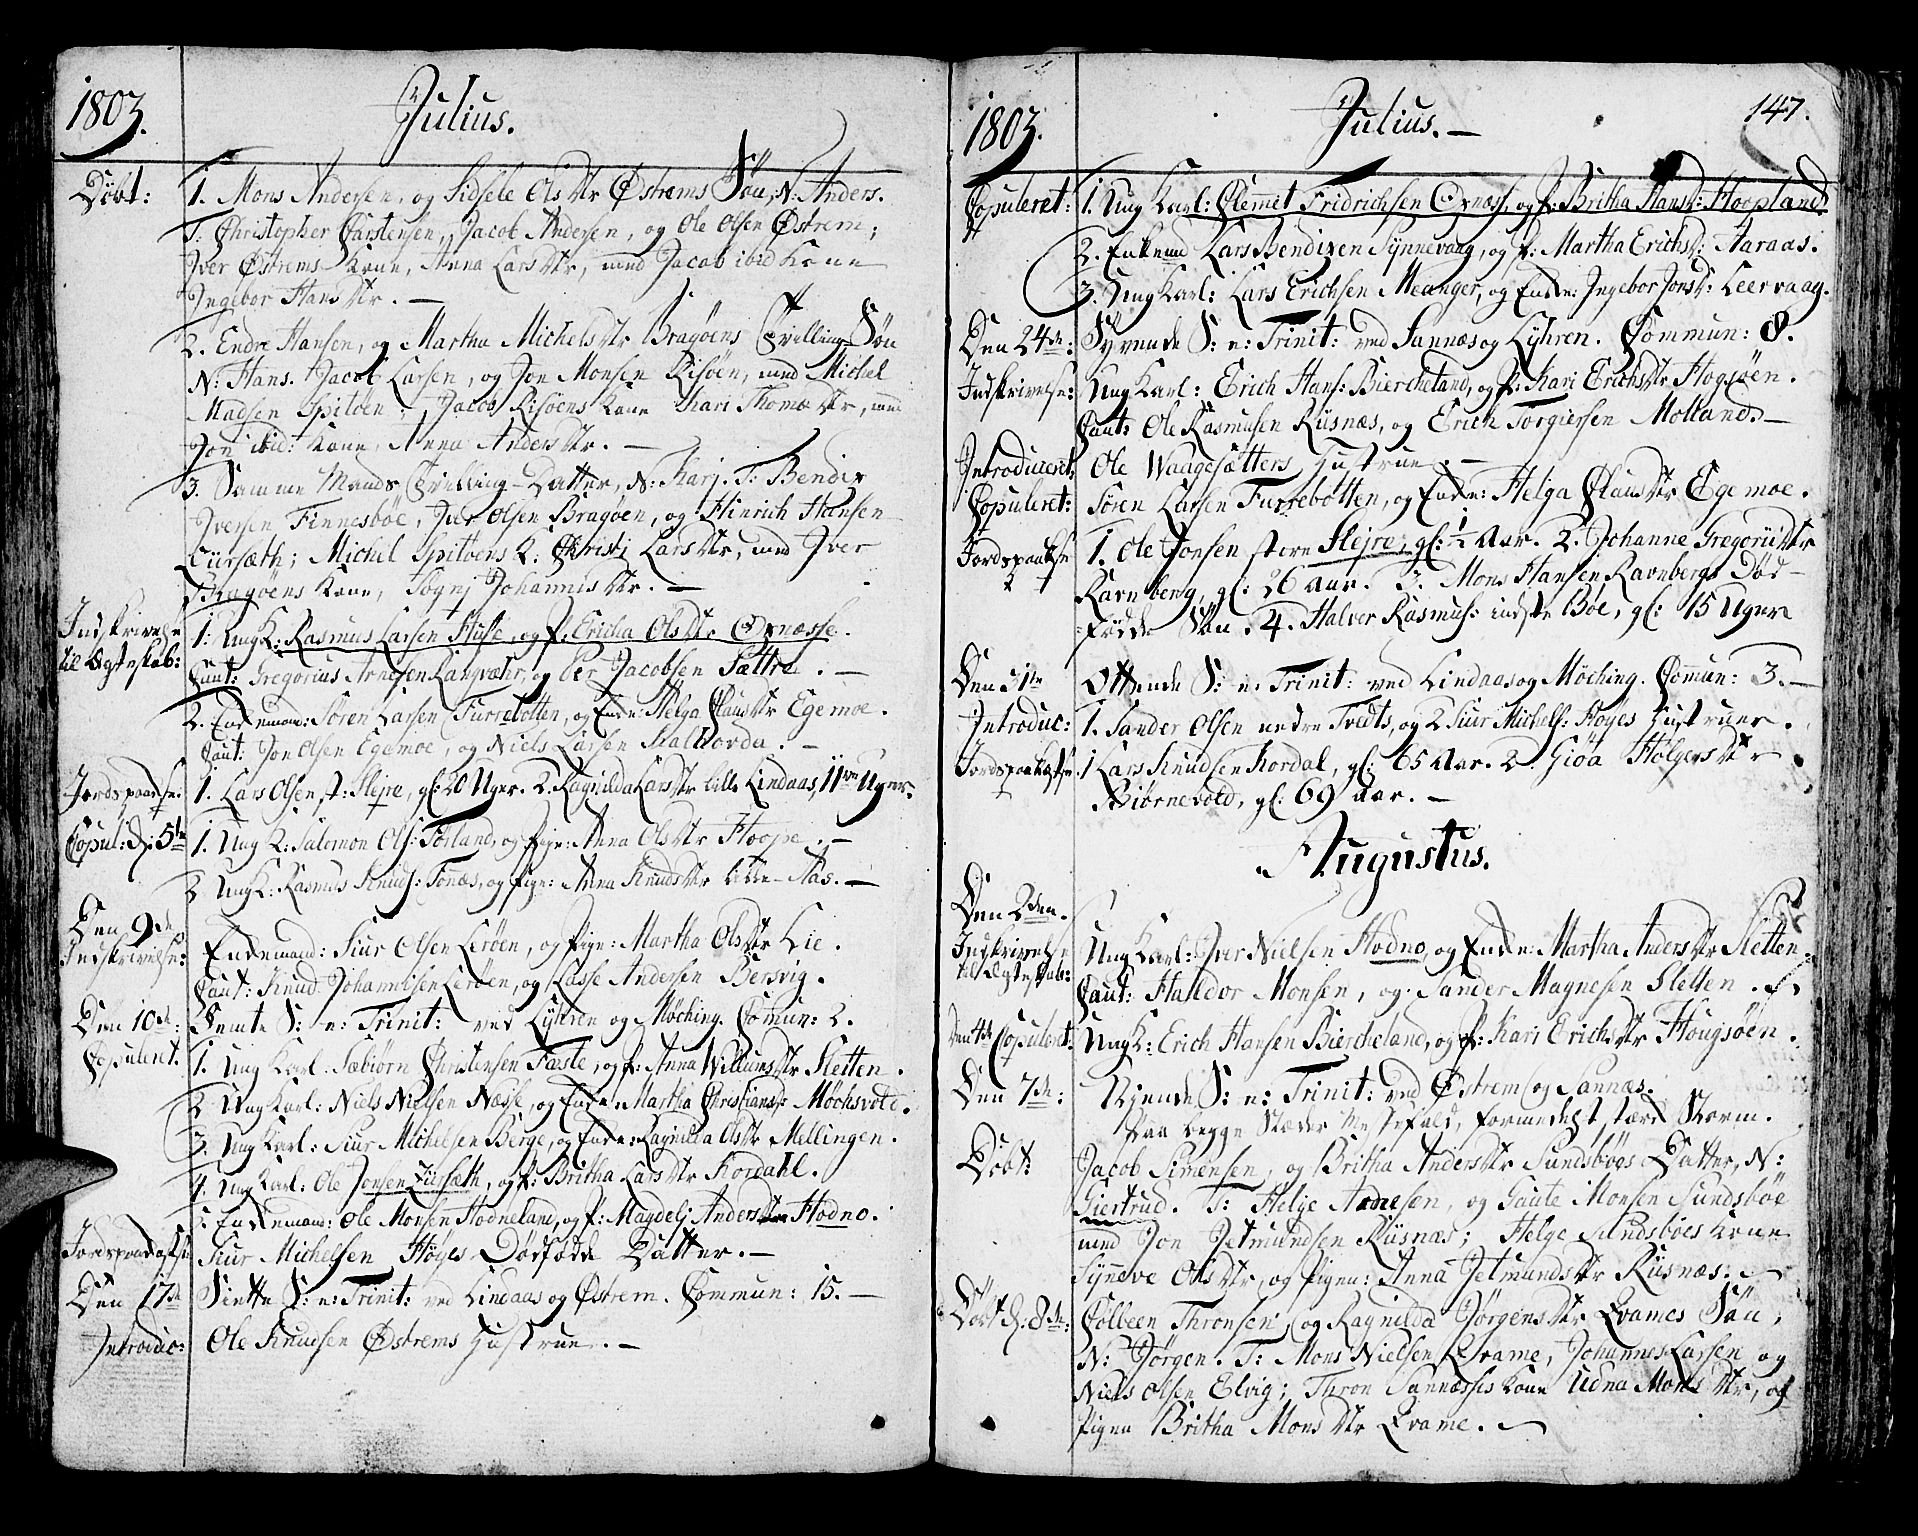 1803. Julius.
Döbt: 1. Mons Andersen, og Sidsele Olsdtr Østrems Sön, N: Anders.
T: Christopher Carstensen, Jacob Andersen, og Ole Olsen Østrem;
Iver Østrems Kone, Anna Larsdtr, med Jacob ibid Kone
Ingebor Hansdtr. —
2. Endre Hansen, og Martha Michelsdtr Bragöens Tvilling Sön
N: Hans. Jacob Larsen, og Jon Monsen Risöen, med Michel
Madsen Spitöen; Jacob Risöens Kone Kari Thomædtr, med
Jon ibid: Kone, Anna Andersdtr. —
3. Samme Mands Tvilling-Datter, N: Karj. T: Bendix
Iversen Finnesböe, Iver Olsen Bragöen, og Hinrich Hansen
Michel Spitöens K: Christj Larsdtr, med Iver
Bragöens Kone, Sognj Johannisdtr. —
Indskrivelse
til Ægteskab:
1: UngK: Rasmus Larsen Huse, og P. Ericha Olsdtr Oxnæsse.
Caut: Gregorius Arnesen og Per Jacobsen Sættre. —
2. Enkemand: Sören Larsen Furrebotten, og Enke: Helga Clausdtr Egemoe.
Caut: Jon Olsen Egemoe, og Niels Larsen Halhovda. —
Jordspaakaste: 1. Lars Olsen st: Hejre, gl: 20 Uger. 2. Ragnilda Larsdtr lille Lindaas, 11 Uger.
Copul: d: 5te 1. UngK: Salomon Ols: Sörland, og Pige: Anna Olsdtr Hoope. —
2 UngK: Rasmus Knuds: Tonæs, og Pige: Anna Knudsdtr lille-Aas. —
Den 9de
Indskrivelse: Enkemand: Siur Olsen Leröen, og Pige: Martha Olsdtr Lie.
Caut: Knud Johannissen Leröen, og Lasse Andersen Bersvig.
Den 10de: Femte S: e: Trinit: ved Lyhren og Möching. Commun: 2.
Copuleret. 1. Ung Karl: Sæbiörn Christensen Fæste, og P: Anna Willumsdtr Sletten.
2 Ung Karl: Niels Nielsen Næsse, og Enke: Martha Christians: Möchsvold.
3. Ung Karl: Siur Michelsen Berge, og Enke: Ragnilda Olsdtr Mellingen.
4. Ung Karl: Ole Jonsen og P: Britha Larsdtr Kordahl.
5 Enkemand: Ole Monsen Hodneland, og P: Magdelj Andersdtr Hodno.
Siur Michelsen Höyes Dödfödde Datter. —
Den 17de Siette S: e: Trinit: ved Lindaas og Østrem. Commun: 15. —
Introduc: Ole Knudsen Østrems Hustrue. —
1803. Julius. — 147.
Copuleret: 1. Ung Karl: Clemet Fridrichsen Oxnæs, og P: Britha Hansdr: Hoopland.
2. Enkemd Lars Bendixen Synnevaag, og P: Martha Erichsdr: Aaraas.
3. Ung Karl: Lars Erichsen Meanger, og Enke: Ingebor Jonsdr: Leervaag.
Den 24de: Syvende S: e: Trinit: ved Sannæs og Lyhren. Commun: 8.
Indskrivelse: Ung Karl: Erich Hans: Biercheland, og P: Kari Erichsdtr Hogsöen.
Caut: Ole Rasmusen Risnæs, og Erich Torgiersen Molland. —
Introduceret: Ole Waagesætters Hustrue. —
Copuleret: Sören Larsen Furrebotten, og Enke: Helga Clausdtr Egemoe.
Jordspaakaste 1. Ole Jonsen store Hejre, gl: ½ Aar. 2. Johanne Gregoriidtr
Ravnberg, gl: 26 Aar. 3. Mons Hansen Ravnbergs Död-
födde Sön. 4. Halver Rasmus: indste Böe, gl: 15 Uger
Den 31te Ottende S: e: Trinit: ved Lindaas og Möching. Commun: 3. —
Introduc: 1. Sander Olsen nedre Tvedts, og 2 Siur Michels: Höyes Hustruer.
1 Lars Knudsen Kordal, gl: 65 Aar. 2. Giöa Holgersdtr
Biörnevold, gl: 69 Aar. —
Augustus.
Den 2den.
Indskrivelse
til Ægteskab:
Ung Karl: Iver Nielsen Hodno, og Enke: Martha Andersdtr Sletten.
Caut: Haldor Monsen, og Sander Magnesen Sletten.
Den 4de Copuleret: UngK: Erich Hansen Biercheland, og P: Kari Erichsdtr Hougsöen.
Den 7de: Niende S: e: Trinit: ved Østrem og Sannæs.
Paa begge Stæder Messefald, formedelst stærk Storm.
Döbt: Jacob Simensen, og Britha Andersdtr Sundsböes Datter, N:
Giertrud. T: Helje Arnesen, og Gaute Monsen Sundsböe
med Jon Jetmundsen Risnæs; Helge Sundsböes Kone
Synneve Olsdtr, og Pigen: Anna Jetmundsdtr Risnæs. —
Döbt d: 8de: Colbeen Thronsen, og Ragnilda Jörgensdtr Qvames Sön,
N: Jörgen. T: Mons Nielsen Qvame, Johannes Larsen og
Niels Olsen Elvig; Thron Sannæsses Kone Udna Monsdtr, og
Pigen Britha Monsdtr Qvame. —